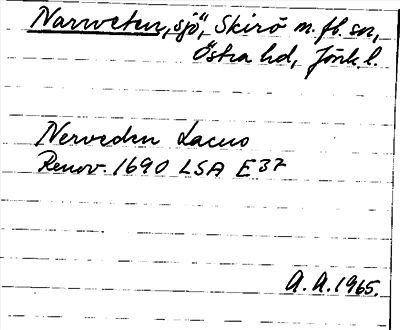 Narveten, "sjö", Skirö m. fl. sn,
Östra hd, Jönk. l.
Nerveden Lacus
Renov. 1690 LSA E37
A. A. 1965.